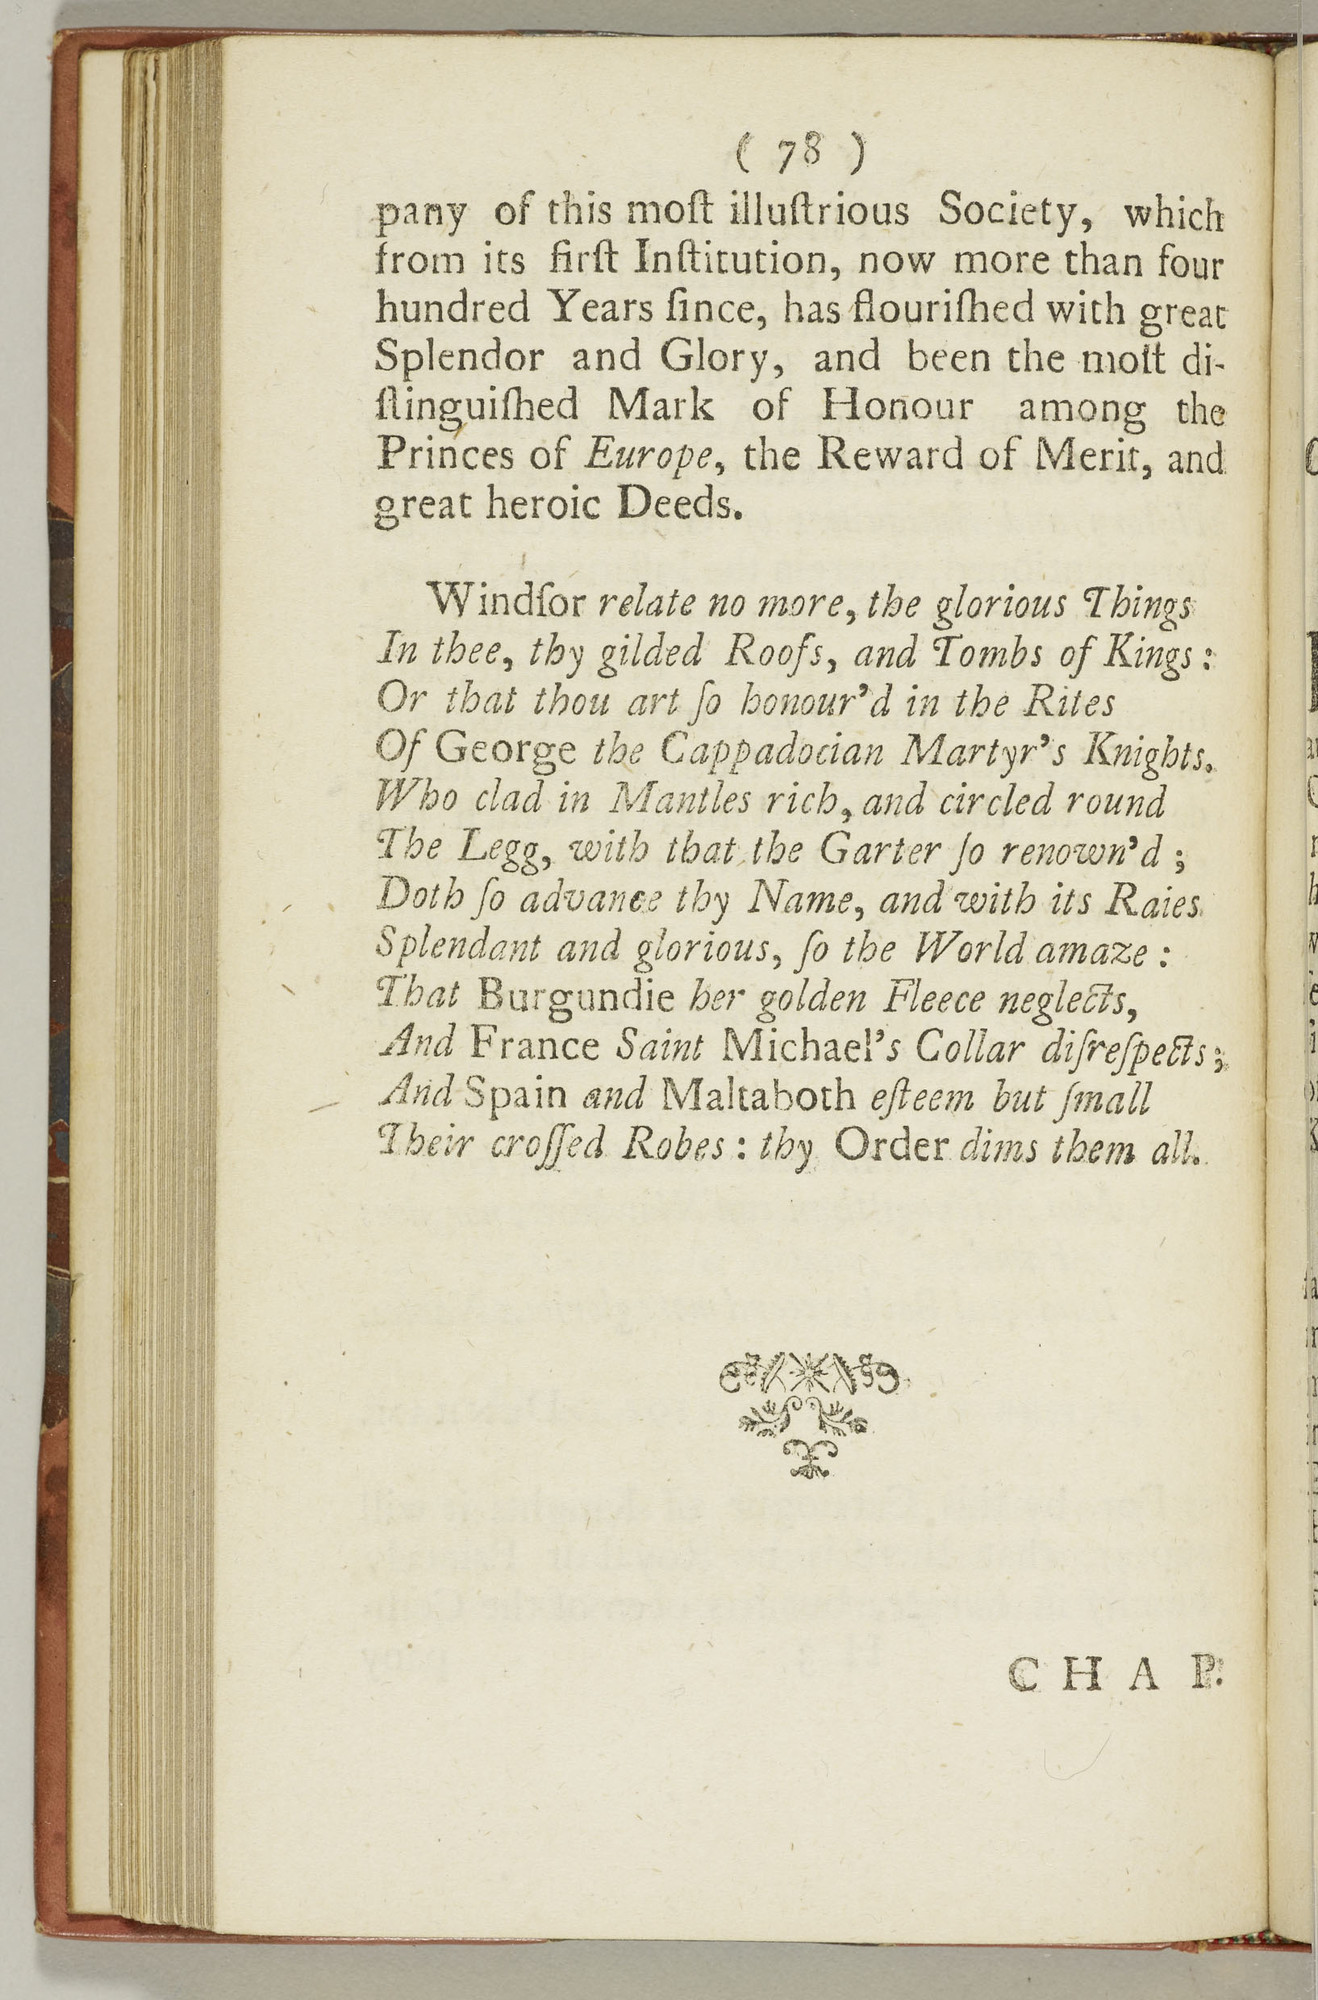 ( 78 )
pany of this moſt illuſtrious Society, which
from its firſt Inſtitution, now more than four
hundred Years ſince, has flouriſhed with great
Splendor and Glory, and been the moſt di-
ſtinguiſhed Mark of Honour among the
Princes of Europe, the Reward of Merit, and
great heroic Deeds.
Windſor relate no more, the glorious Things
In thee, thy gilded Roofs, and Tombs of Kings:
Or that thou art ſo honour'd in the Rites
Of George the Cappadocian Martyr's Knights.
Who clad in Mantles rich, and circled round
The Legg, with that the Garter ſo renown'd;
Doth ſo advance thy Name, and with its Raies
Splendant and glorious, ſo the World amaze:
That Burgundie her golden Fleece neglects,
And France Saint Michael's Collar diſreſpects;
And Spain and Maltaboth eſteem but ſmall
Their croſſed Robes: thy Order dims them all.
CHAP.